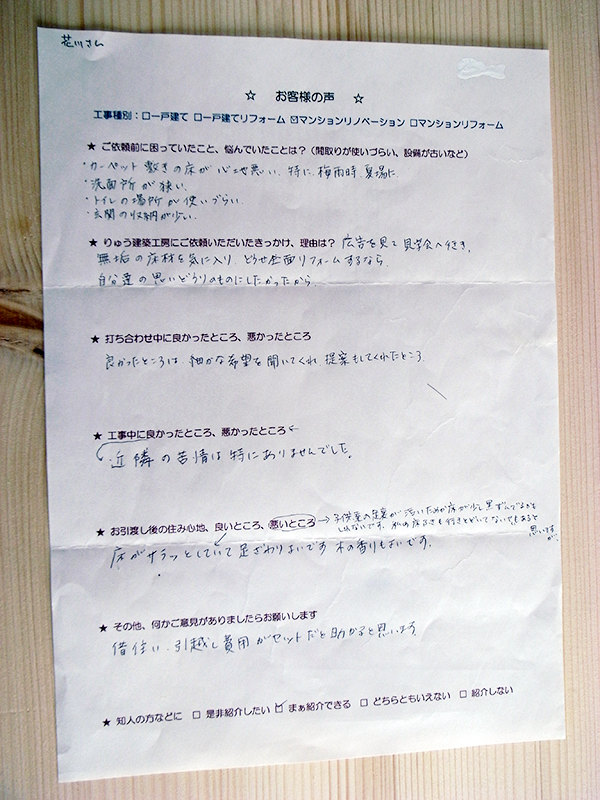 花川さん
☆ お客様の声 ☆
工事種別：□一戸建て □一戸建てリフォーム ☑マンションリノベーション □マンションリフォーム
★ ご依頼前に困っていたこと、悩んでいたことは？（間取りが使いづらい、設備が古いなど）
・カーペット敷きの床が心地悪い、特に、梅雨時、夏場に
・洗面所が狭い
・トイレの場所が使いづらい
・玄関の収納が少い
★ りゅう建築工房にご依頼いただいたきっかけ、理由は？ 広告を見て見学会へ行き、
無垢の床材を気に入り、どうせ全面リフォームするなら
自分達の思いどうりのものにしたかったから
★ 打ち合わせ中に良かったところ、悪かったところ
良かったところは、細かな希望を聞いてくれ、提案もしてくれたところ
★ 工事中に良かったところ、悪かったところ
近隣の苦情は特にありませんでした。
★ お引渡し後の住み心地、良いところ、悪いところ → 子供達の足裏が汚いためか床が少し黒ずんでるかも
しれないです。
思います
が、
床がサラッとしていて足ざわりよいです 木の香りもよいです。
★ その他、何かご意見がありましたらお願いします
借住い、引越し費用がセットだと助かると思います
★ 知人の方などに □ 是非紹介したい ☑ まぁ紹介できる □ どちらともいえない □ 紹介しない